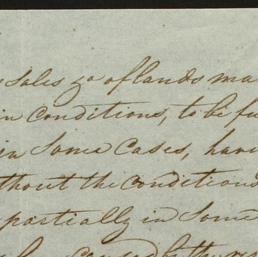 sales &c of lands ma
in conditions, to be fu
in Some Cases, hav
ithout the conditions
partially in Some